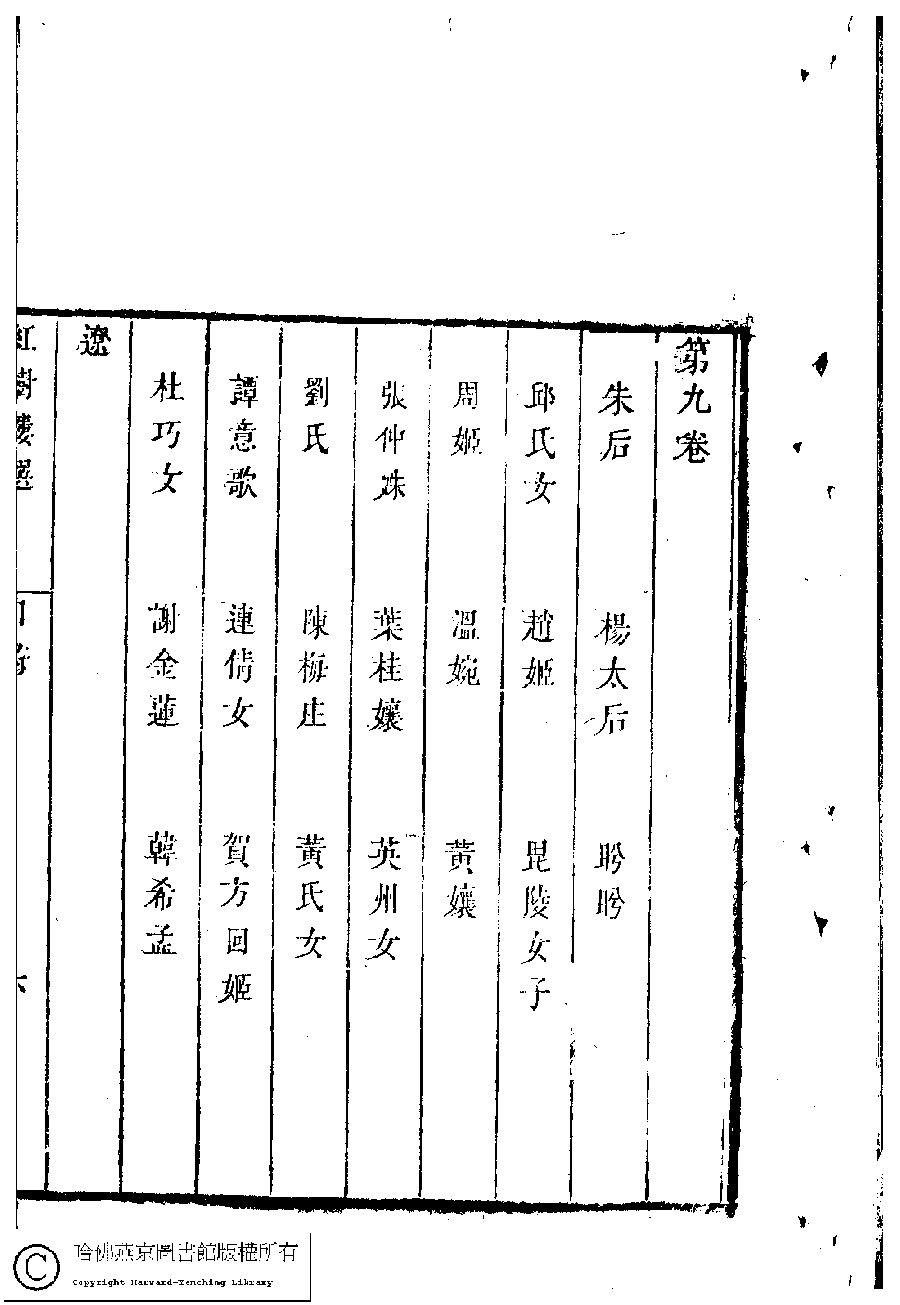 第九卷
朱后 楊太后 盻盻
邱氏女 趙姬 毘陵女子
周姬 溫婉 黃孃
張仲姝 葉桂孃 英州女
劉氏 陳梅庄 黃氏女
譚意歌 連倩女 賀方回姬
杜巧女 謝金蓮 韓希孟
遼
紅樹樓選
六
哈佛燕京圖書館版權所有
Copyright Harvard-Yenching Library